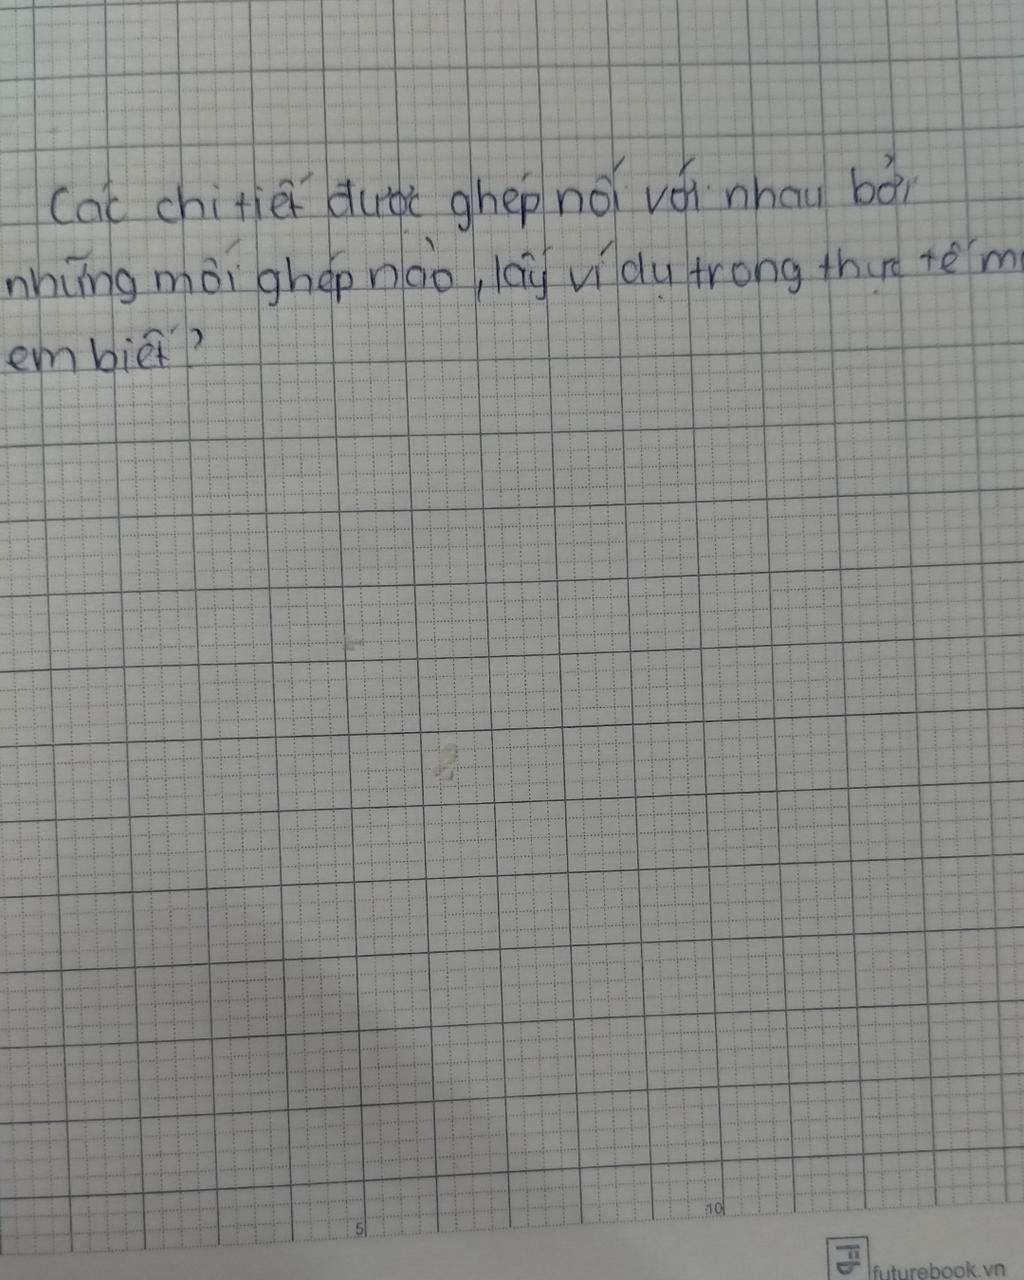 Các chi tiết được ghép nối với nhau bởi
những mối ghép nào, lấy ví dụ trong thực tế
em biết?
5
10
futurebook.vn